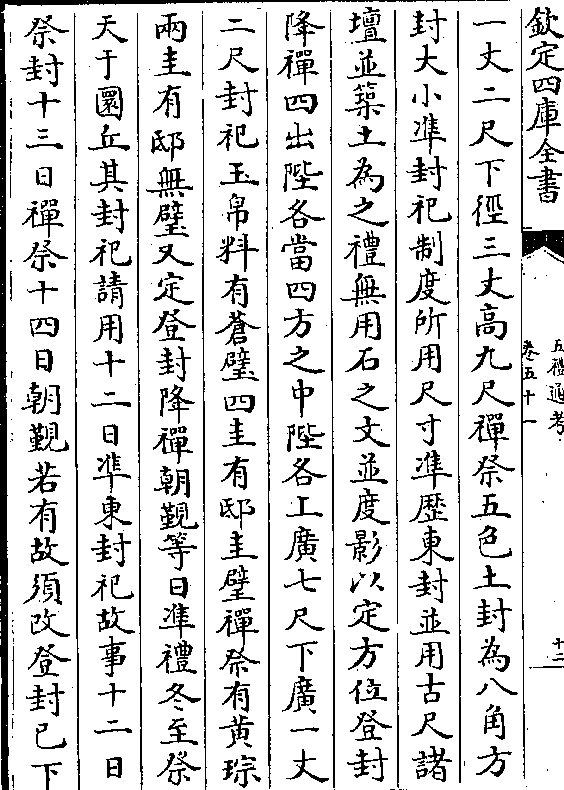 欽定四庫全書
五禮通考
卷五十一
十二
一丈二尺下徑三丈高九尺禪祭五色土封為八角方
封大小準封祀制度所用尺寸準歷東封並用古尺諸
壇並築土為之禮無用石之文並度影以定方位登封
降禪四出陛各當四方之中陛各上廣七尺下廣一丈
二尺封祀玉帛料有蒼璧四圭有邸圭璧禪祭有黃琮
兩圭有邸無璧又定登封降禪朝覲等日準禮冬至祭
天于圜丘其封祀請用十二日準東封祀故事十二日
祭封十三日禪祭十四日朝覲若有故須改登封已下